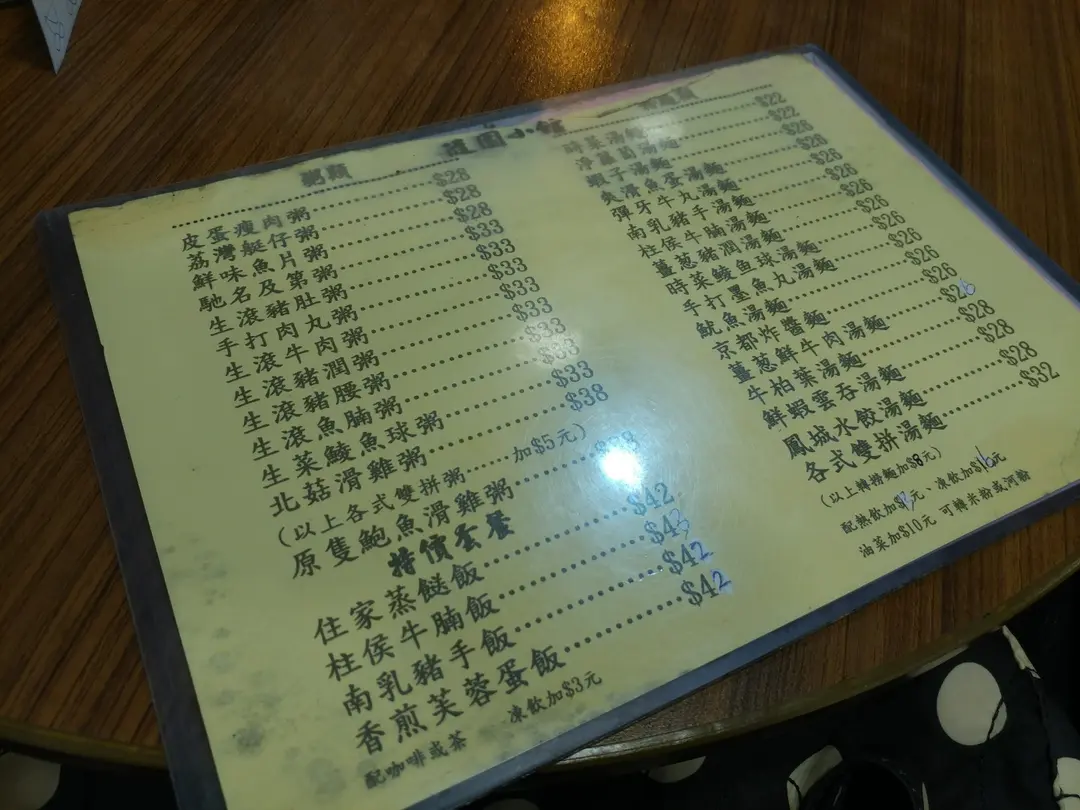 粥類
皮蛋瘦肉粥 $28
荔灣艇仔粥 $28
鮮味魚片粥 $28
馳名及第粥 $33
生滾豬肚粥 $33
手打肉丸粥 $33
生滾牛肉粥 $33
生滾豬潤粥 $33
生滾豬腰粥 $33
生滾魚腩粥 $33
生菜鯪魚球粥 $33
北菇滑雞粥 $38
(以上各式雙拼粥 加$5元)
原隻鮑魚滑雞粥
特價套餐
住家蒸餸飯 $42
柱侯牛腩飯 $43
南乳豬手飯 $42
香煎芙蓉蛋飯 $42
配咖啡或茶 凍飲加$3元
園小館
時菜湯麵 $22
湯麵 $22
蝦子湯麵 $26
爽滑魚蛋湯麵 $26
彈牙牛丸湯麵 $26
南乳豬手湯麵 $26
柱侯牛腩湯麵 $26
薑蔥豬潤湯麵 $26
時菜鯪魚球湯麵 $26
手打墨魚丸湯麵 $26
魷魚湯麵 $26
京都炸醬麵 $26
薑蔥鮮牛肉湯麵 $26
牛柏葉湯麵 $28
鮮蝦雲吞湯麵 $28
鳳城水餃湯麵 $28
各式雙拼湯麵 $32
(以上轉撈麵加$8元)
配熱飲加 元、凍飲加$16元
油菜加$10元 可轉米粉或河粉